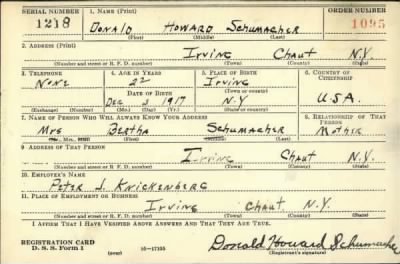 SERIAL NUMBER 1. NAME (Print) ORDER NUMBER
1218 DONALD HOWARD SCHUMACHER 1095
(First) (Middle) (Last)
2. ADDRESS (Print)
IRVING CHAUT N.Y.
(Number and street or R. F. D. number) (Town) (County) (State)
3. TELEPHONE 4. AGE IN YEARS 5. PLACE OF BIRTH 6. COUNTRY OF CITIZENSHIP
NONE 22 IRVING
DATE OF BIRTH (Town or county)
DEC 3 1917 N.Y U.S.A.
(Exchange) (Number) (Mo.) (Day) (Yr.) (State or country)
7. NAME OF PERSON WHO WILL ALWAYS KNOW YOUR ADDRESS 8. RELATIONSHIP OF THAT PERSON
MRS BERTHA SCHUMACHER MOTHER
(First) (Middle) (Last)
9. ADDRESS OF THAT PERSON
IRVING CHAUT N.Y.
(Number and street or R. F. D. number) (Town) (County) (State)
10. EMPLOYER'S NAME
PETER J. KNICKENBERG
11. PLACE OF EMPLOYMENT OR BUSINESS
IRVING CHAUT N.Y.
(Number and street or R. F. D. number) (Town) (County) (State)
I AFFIRM THAT I HAVE VERIFIED ABOVE ANSWERS AND THAT THEY ARE TRUE.
REGISTRATION CARD Donald Howard Schumacher
D. S. S. Form 1 (over) (Registrant's signature)